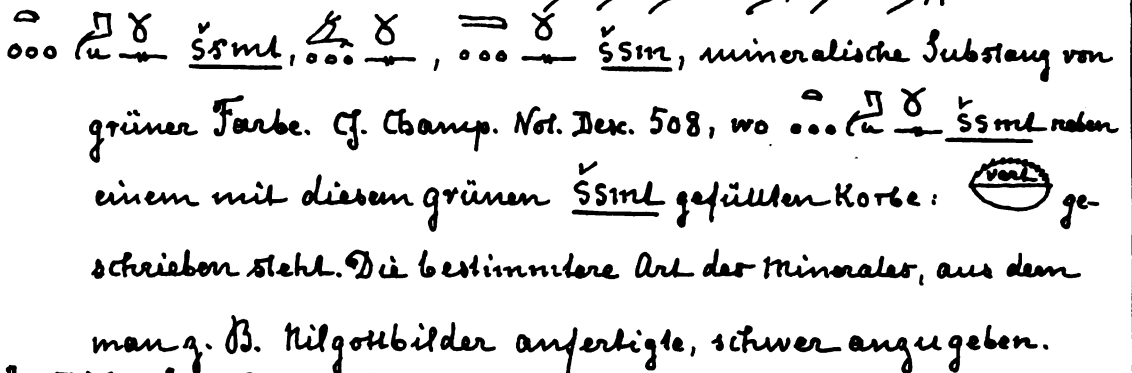 šsmt, , šsm, mineralische Substanz von
grüner Farbe. Cf. Champ. Not. Desc. 508, wo šsmt neben
einem mit diesem grünen šsmt gefüllten Korbe: vert ge-
schrieben steht. Die bestimmtere Art des Minerales, aus dem
man z. B. Nilgottbilder anfertigte, schwer anzugeben.